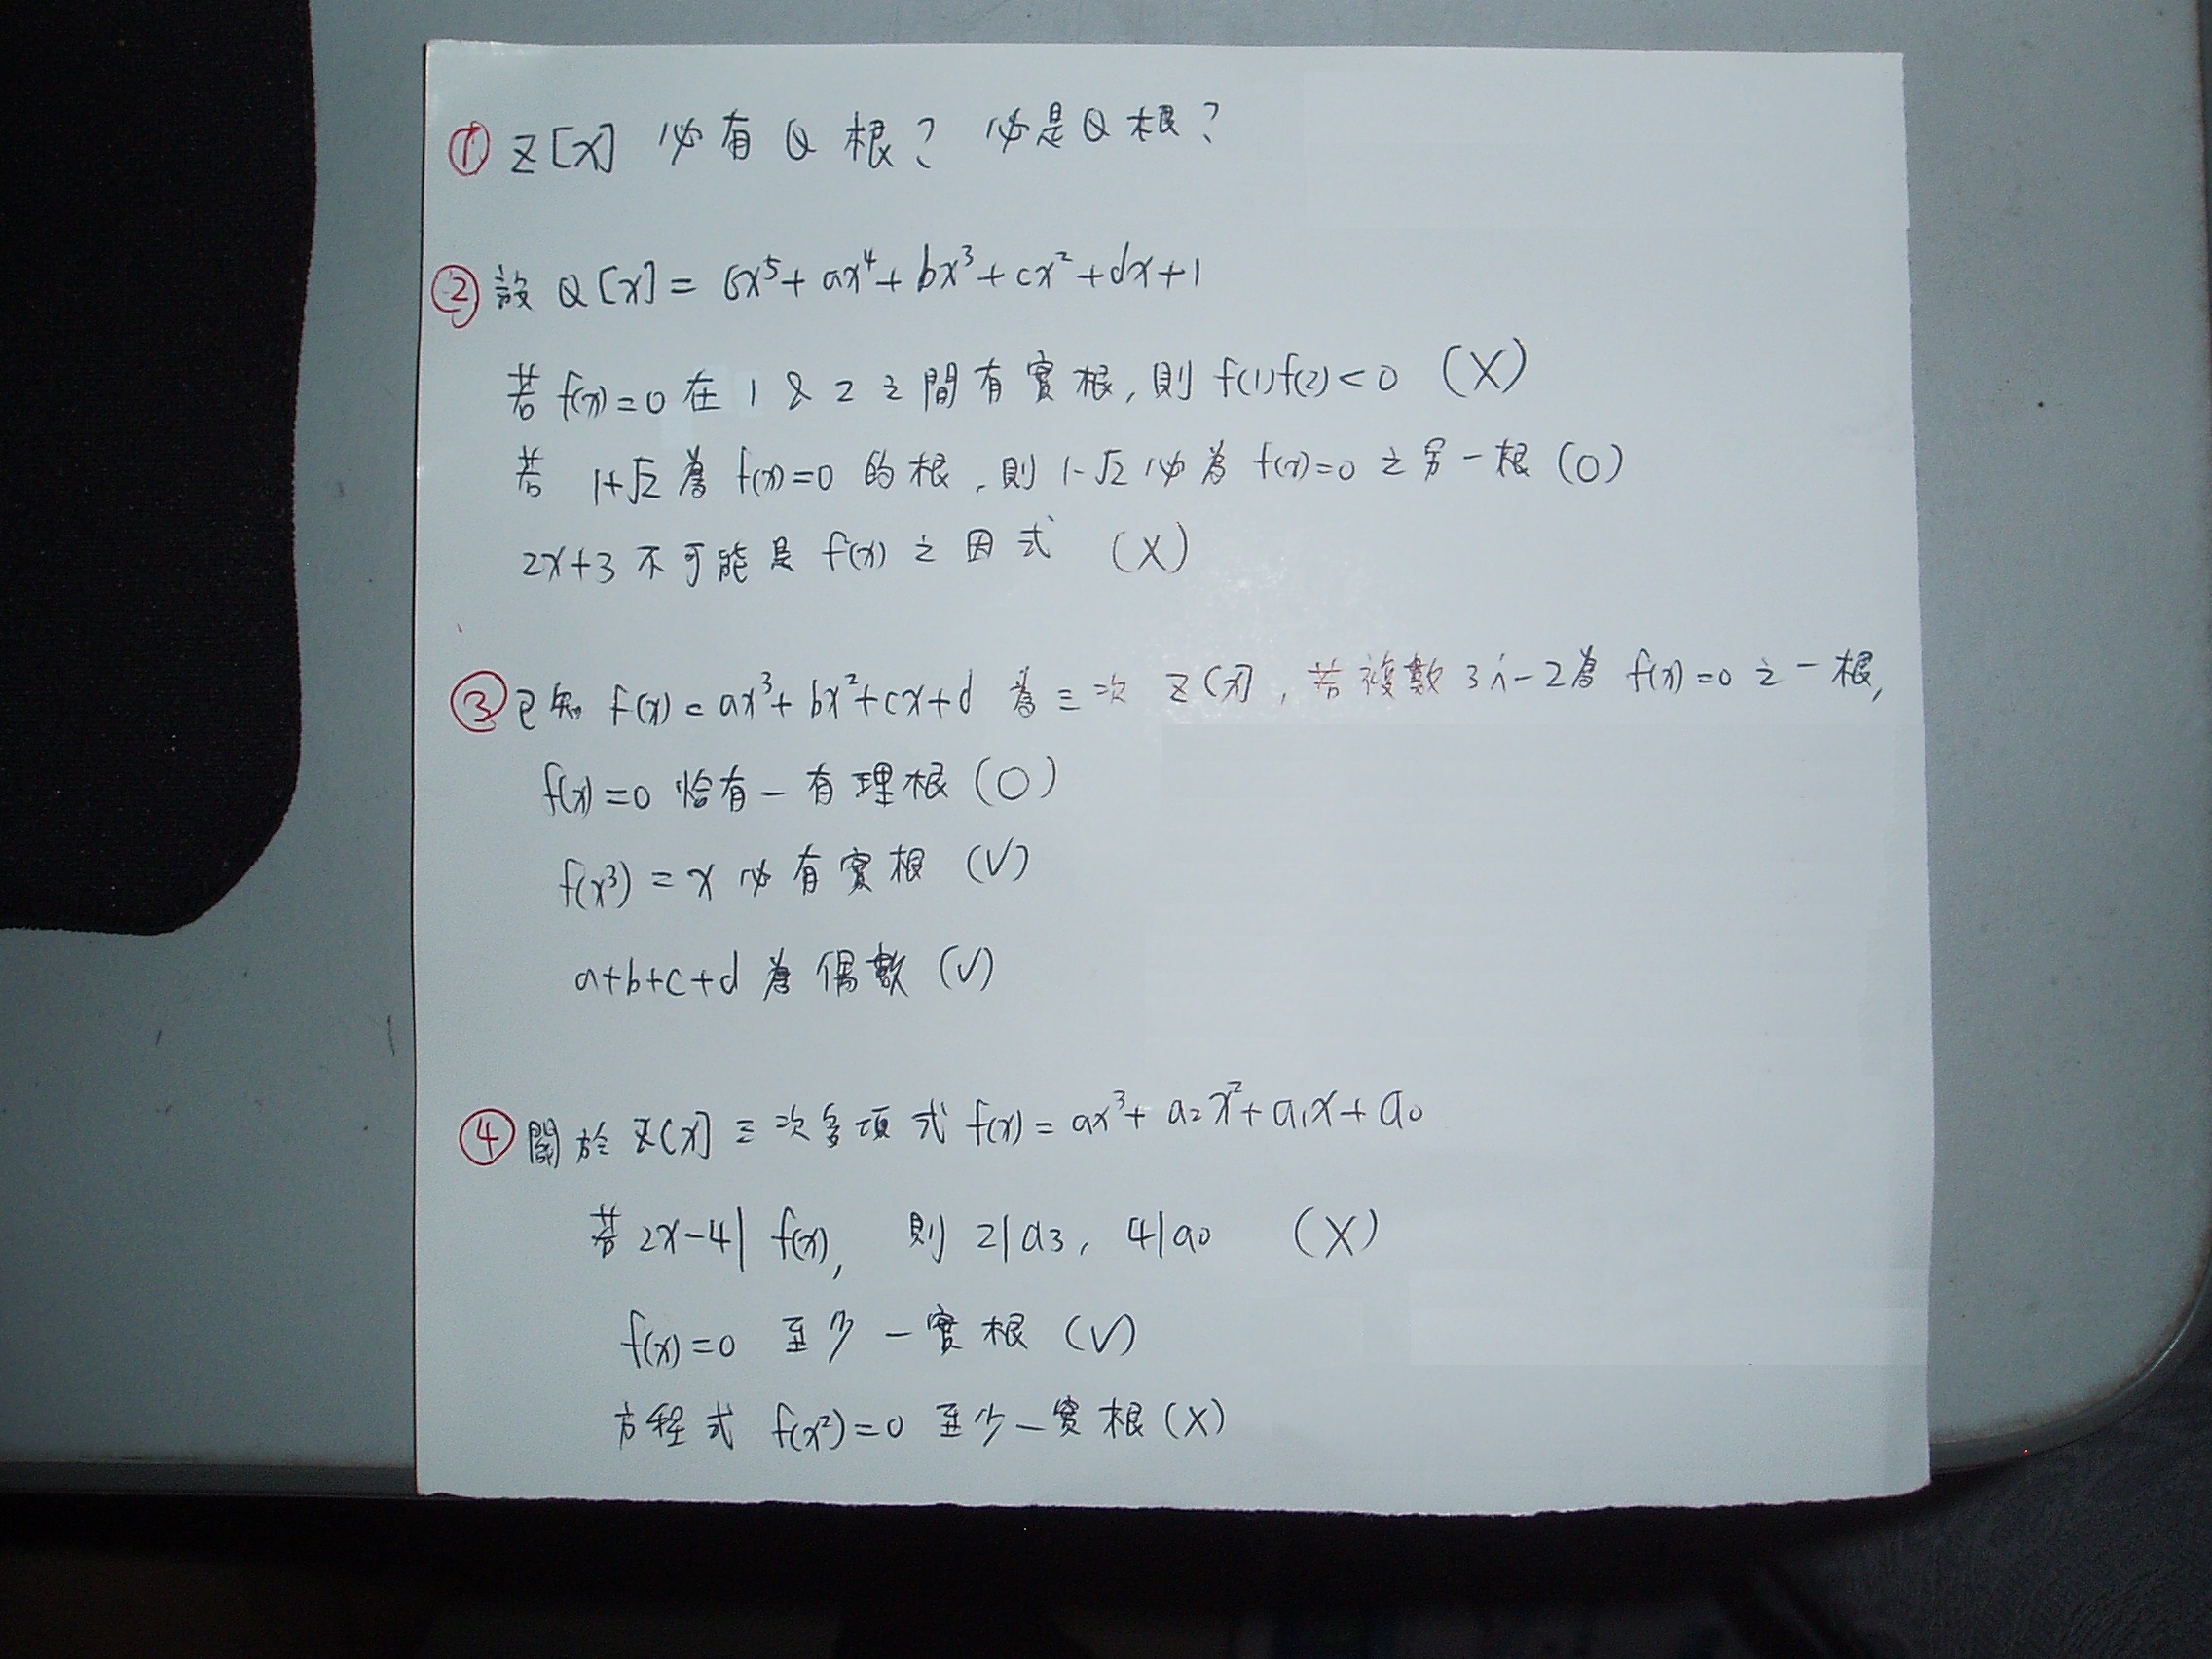 ① Z[x] 必有 Q 根? 必是 Q 根?
② 設 Q[x] = 6x⁵+ ax⁴+ bx³+ cx²+dx+1
若 f(x)=0 在 1 & 2 之間有實根, 則 f(1)f(2)<0 (X)
若 1+√2 為 f(x)=0 的根, 則 1-√2 必為 f(x)=0 之另一根 (O)
2x+3 不可能是 f(x) 之因式 (X)
③ 已知 f(x) = ax³+ bx²+cx+d 為三次 Z[x], 若複數 3i-2為 f(x)=0 之一根,
f(x)=0 恰有一有理根 (O)
f(x³) = x 必有實根 (V)
a+b+c+d 為偶數 (V)
④ 關於 Z[x] 三次多項式 f(x) = ax³+ a₂x²+ a₁x+ a₀
若 2x-4| f(x), 則 2|a₃, 4|a₀ (X)
f(x)=0 至少一實根 (V)
方程式 f(x²)=0 至少一實根 (X)